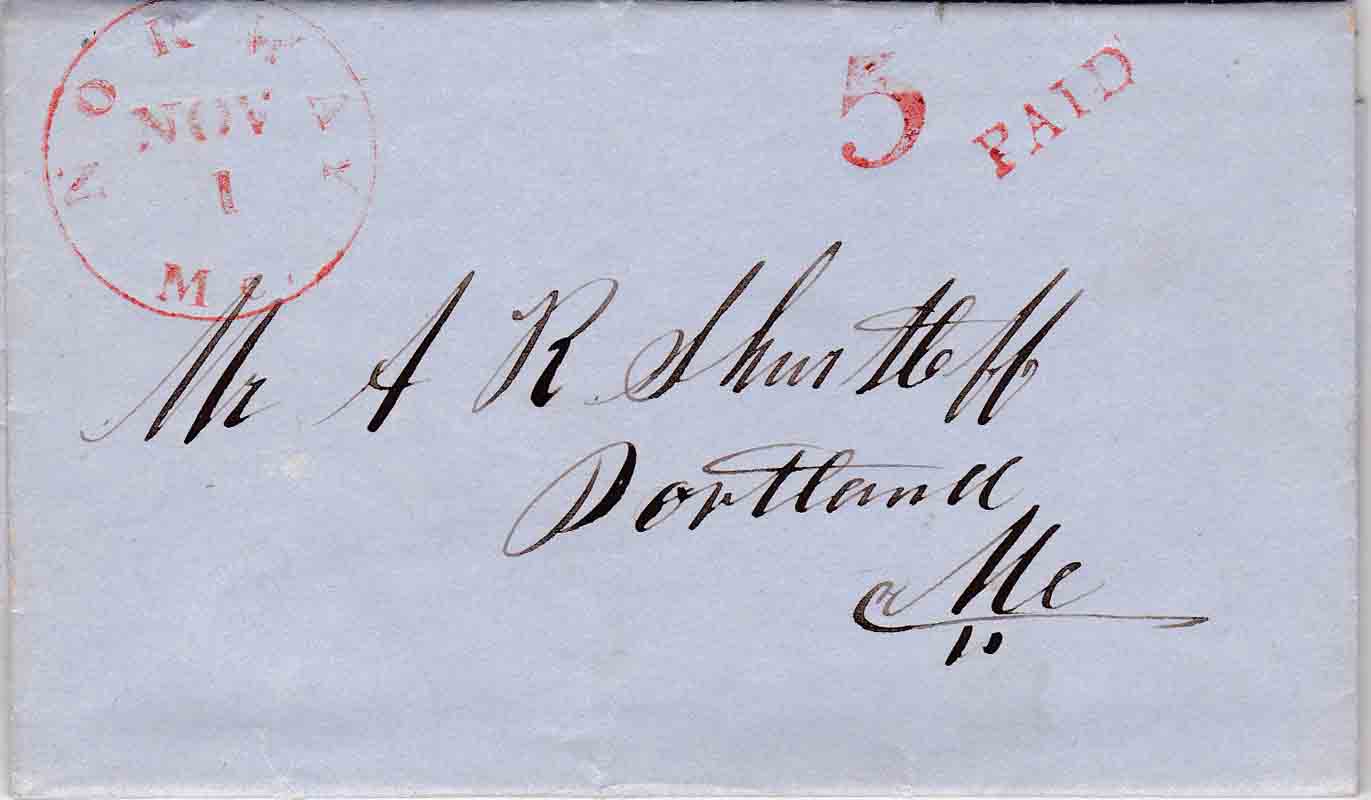 NORWAY
NOV
1
Me.
5
PAID
Mr A R Shurtleff
Portland
Me